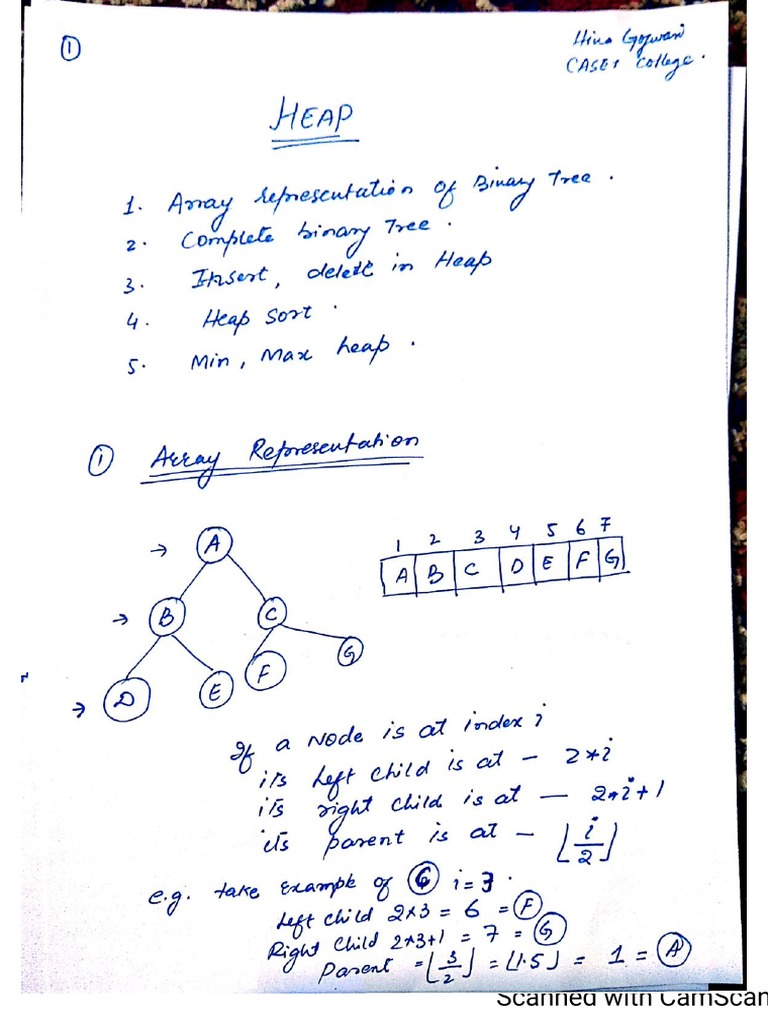 ①
Hina Gojwani
CASET College.
HEAP
1. Array representation of Binary Tree.
2. Complete binary Tree.
3. Insert, delete in Heap
4. Heap Sort.
5. Min, Max heap.
① Array Representation
→ A
1 2 3 4 5 6 7
A B C D E F G
→ B C
G
→ D E F
If a Node is at index i
its Left child is at - 2*i
its right child is at - 2*i+1
its parent is at - ⌊i/2⌋
e.g. take Example of C i=3.
Left child 2*3 = 6 = F
Right Child 2*3+1 = 7 = G
Parent = ⌊3/2⌋ = ⌊1.5⌋ = 1 = A
Scanned with CamScan